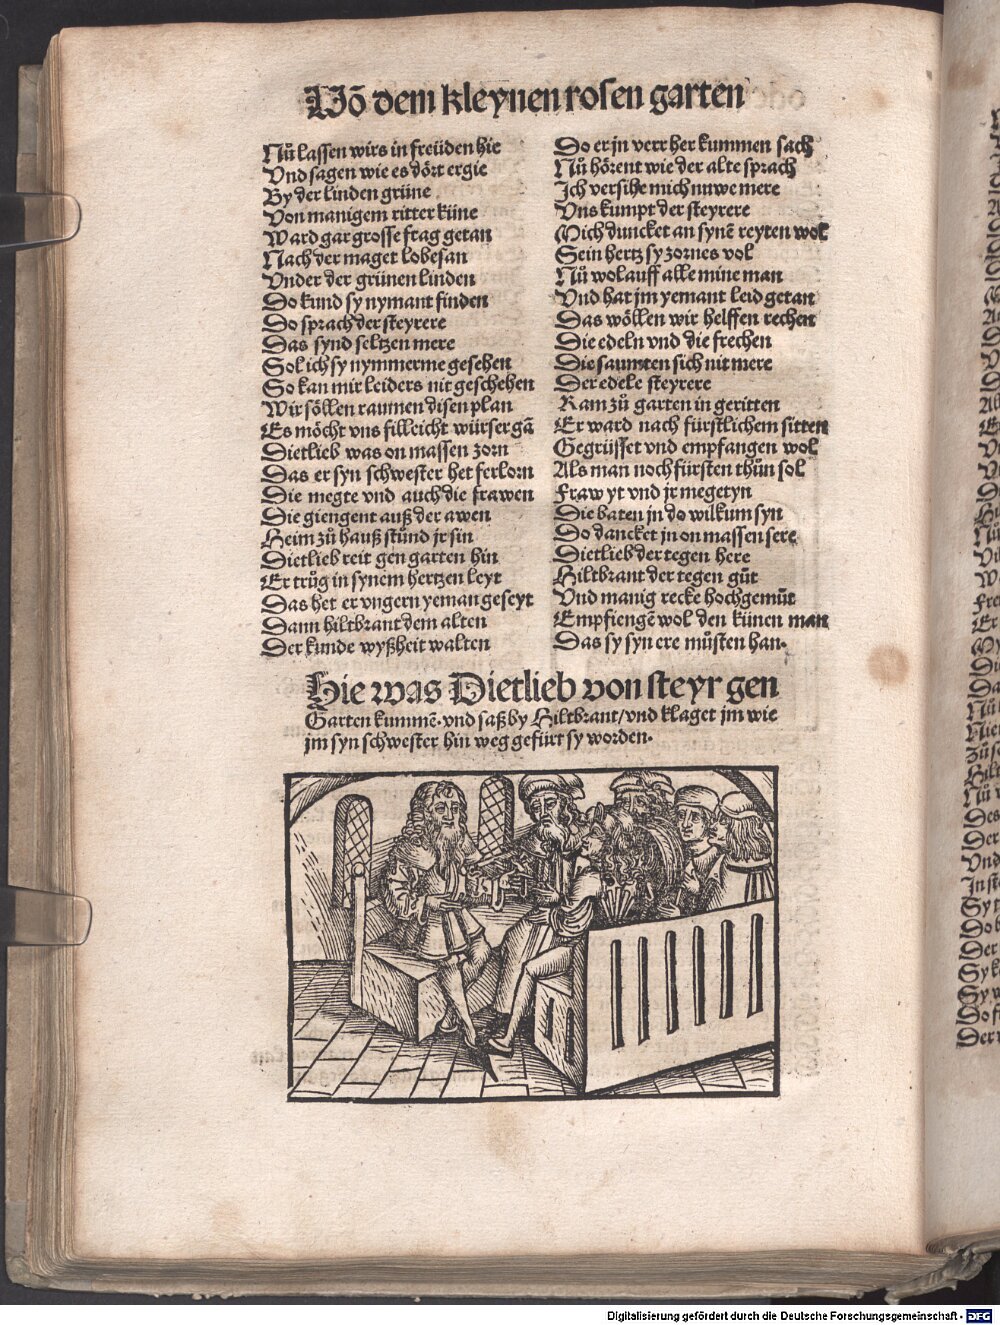 Vō dem kleynen rosen garten
Nů lassen wirs in freüden hie
Vnd sagen wie es dört ergie
By der linden grüne
Von manigem ritter küne
Ward gar grosse frag getan
Nach der maget lobesan
Vnder der grünen linden
Do kund sy nymant finden
Do sprach der steyrere
Das synd seltzen mere
Sol ich sy nymmerme gesehen
So kan mir leiders nit geschehen
Wir söllen raumen disen plan
Es möcht vns filleicht würser gā
Dietlieb was on massen zorn
Das er syn schwester het ferlorn
Die megte vnd auch die frawen
Die giengent auß der awen
Heim zů hauß stůnd jr sin
Dietlieb reit gen garten hin
Er trůg in synem hertzen leyt
Das het er vngern yeman geseyt
Dann hiltbrant dem alten
Der kunde wyßheit walten
Do er jn verr her kummen sach
Nů hörent wie der alte sprach
Ich versihe mich nuwe mere
Vns kumpt der steyrere
Mich duncket an synē reyten wol
Sein hertz sy zornes vol
Nů wolauff alle mine man
Vnd hat jm yemant leid getan
Das wöllen wir helffen rechen
Die edeln vnd die frechen
Die saumten sich nit mere
Der edele steyrere
Kam zů garten in geritten
Er ward nach fürstlichem sitten
Gegrüsset vnd empfangen wol
Als man noch fürsten thůn sol
Fraw yt vnd jr megetyn
Die baten jn do wilkum syn
Do dancket jn on massen sere
Dietlieb der tegen here
Hiltbrant der tegen gůt
Vnd manig recke hochgemůt
Empfiengē wol den künen man
Das sy syn ere můsten han.
Hie was Dietlieb von steyr gen
Garten kummē. vnd saß by Hiltbrant/vnd klaget jm wie
jm syn schwester hin weg gefürt sy worden.
Digitalisierung gefördert durch die Deutsche Forschungsgemeinschaft - DFG